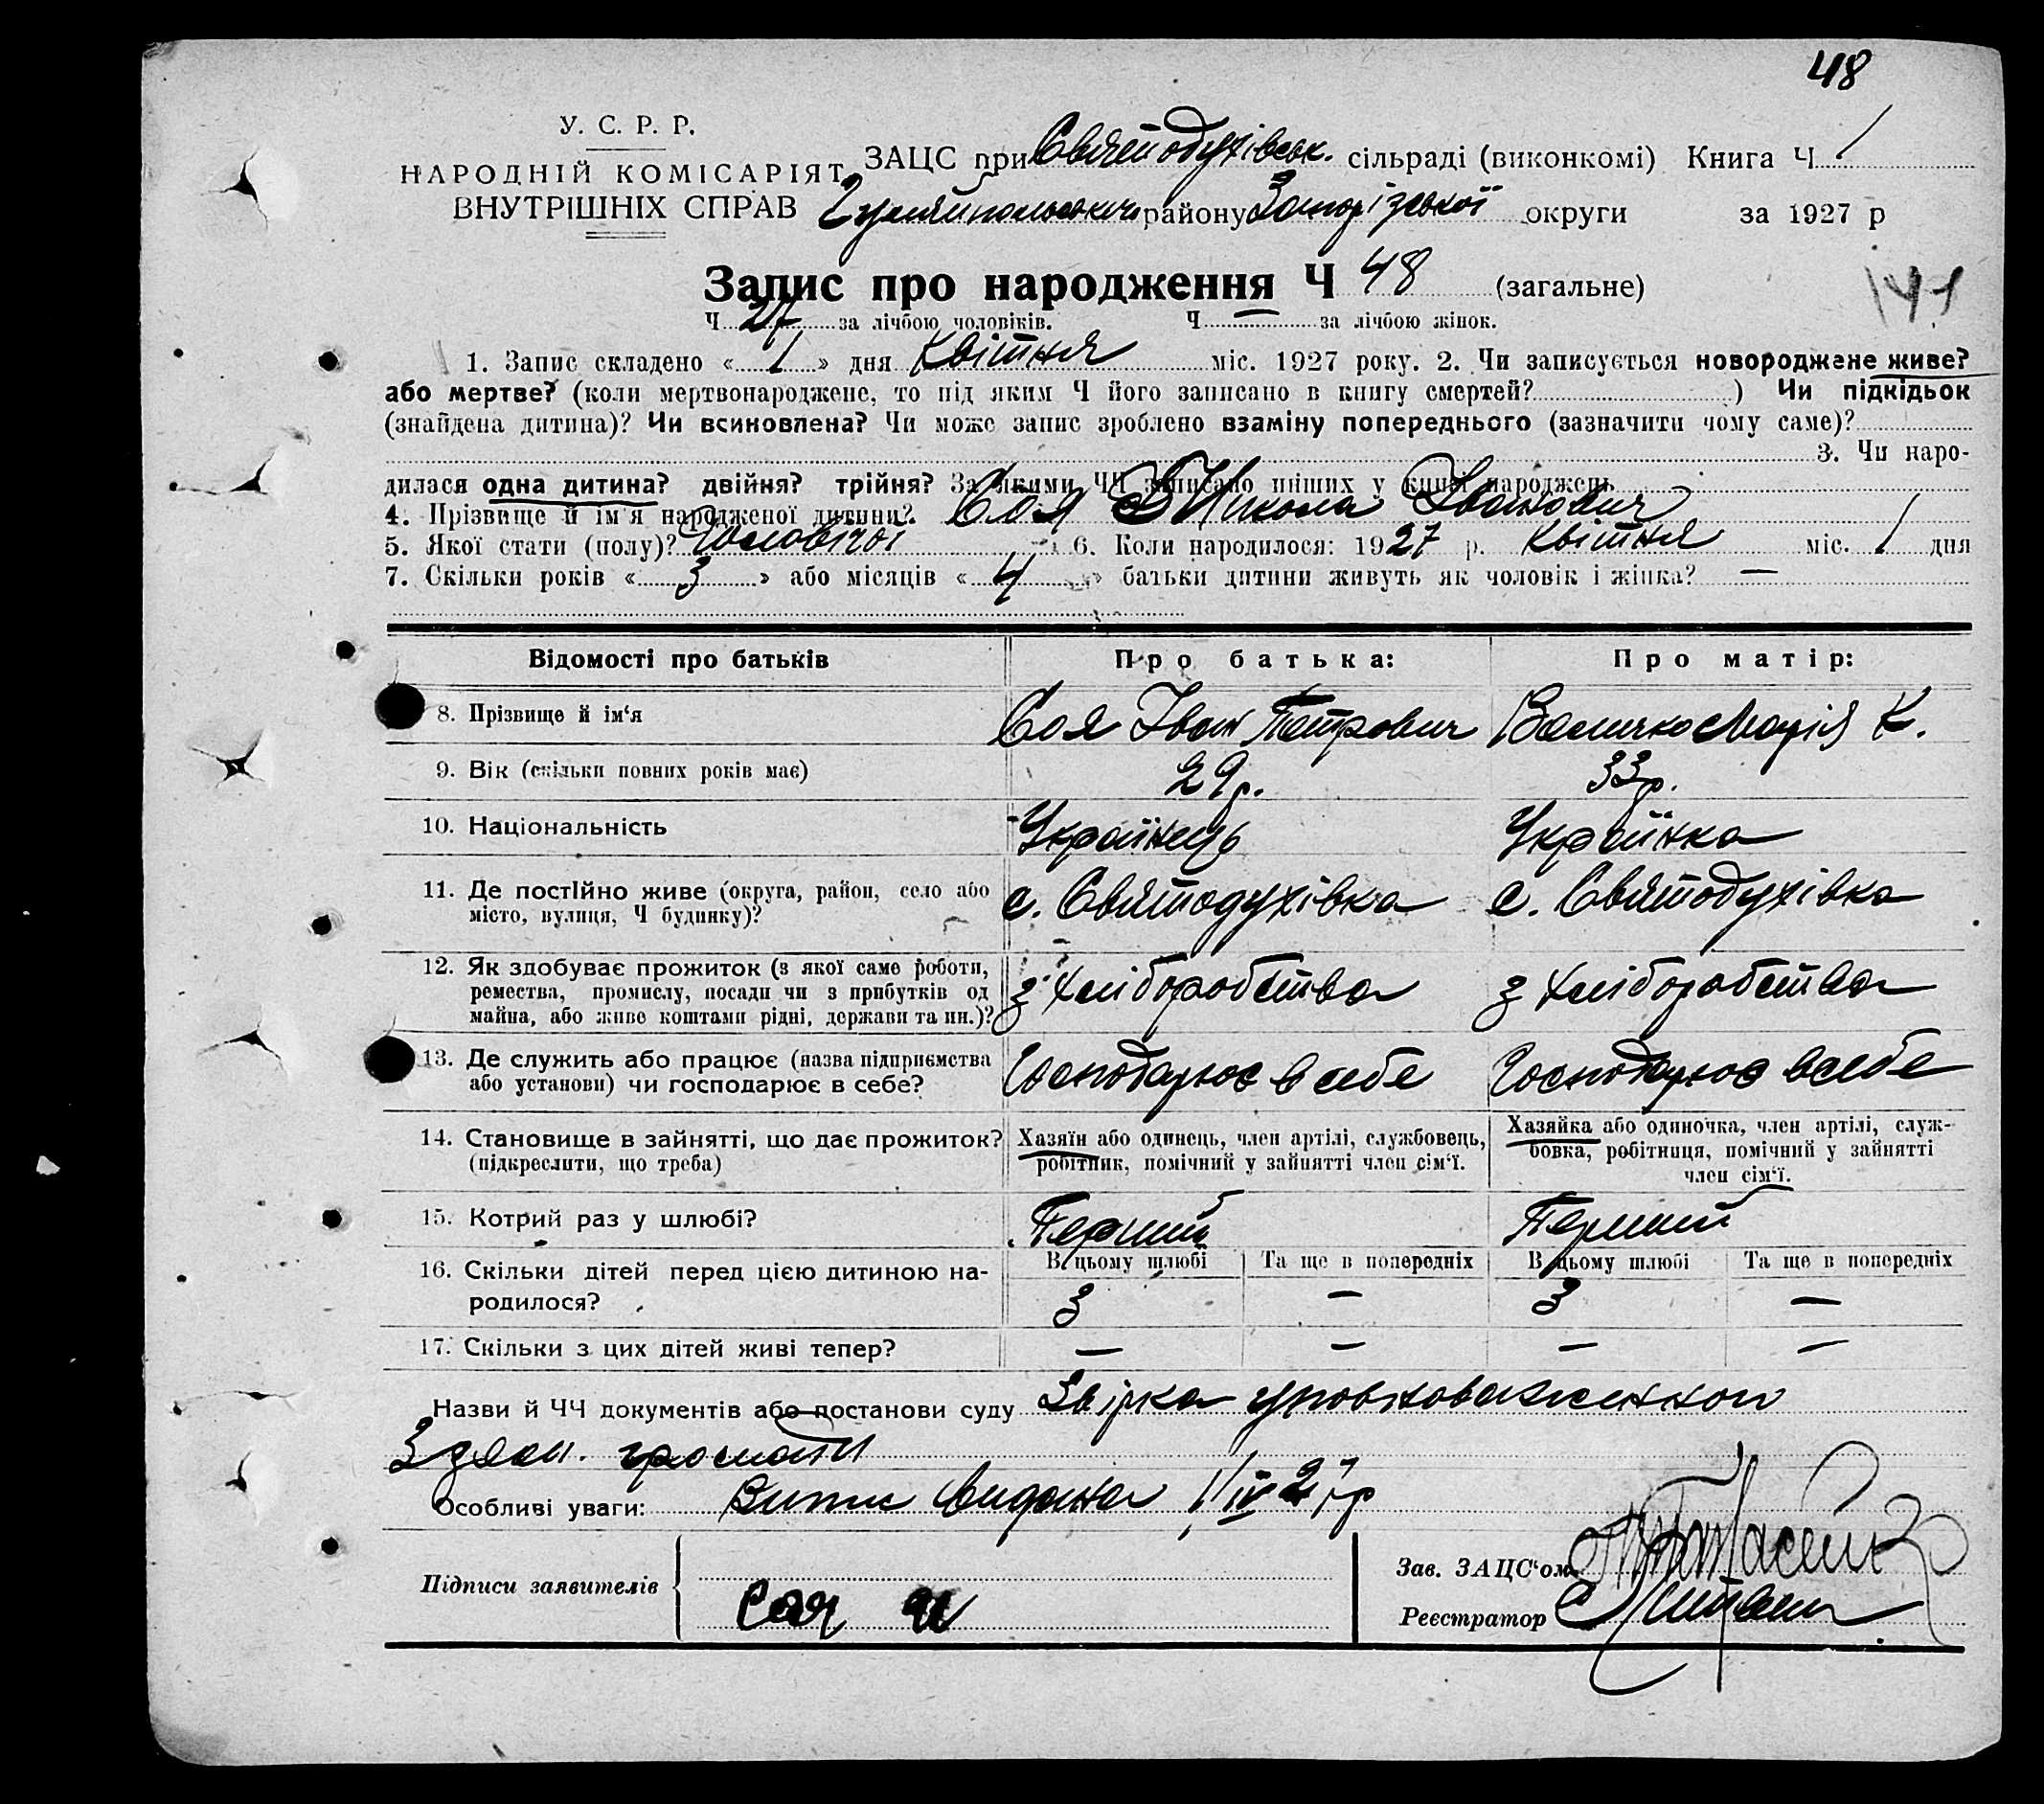 48
У. С. Р. Р.
НАРОДНІЙ КОМІСАРІЯТ
ВНУТРІШНІХ СПРАВ
ЗАЦС при Святодухівськ. сільраді (виконкомі) Книга Ч 1
Гуляйпольського району Запорізької округи за 1927 р
Запис про народження Ч 48 (загальне)
141
Ч 27 за лічбою чоловіків. Ч — за лічбою жінок.
1. Запис складено « 1 » дня Квітня міс. 1927 року. 2. Чи записується новороджене живе?
або мертве? (коли мертвонароджене, то під яким Ч його записано в книгу смертей? ) Чи підкідьок
(знайдена дитина)? Чи всиновлена? Чи може запис зроблено взаміну попереднього (зазначити чому саме)?
3. Чи наро-
дилася одна дитина? двійня? трійня? За якими ЧЧ записано инших у книгі народжень
4. Прізвище й ім'я народженої дитини? Соя Микола Іванович
5. Якої стати (полу)? Чоловічої 6. Коли народилося: 1927 р. Квітня міс. 1 дня
7. Скільки років « 3 » або місяців « 4 » батьки дитини живуть як чоловік і жінка? —
Відомості про батьків Про батька: Про матір:
8. Прізвище й ім'я Соя Іван Петрович Величко Марія К.
9. Вік (скільки повних років має) 29 р. 33 р.
10. Національність Українець Українка
11. Де постійно живе (округа, район, село або
місто, вулиця, Ч будинку)? с. Святодухівка с. Святодухівка
12. Як здобуває прожиток (з якої саме роботи,
ремества, промислу, посади чи з прибутків од
майна, або живе коштами рідні, держави та ин.)? з хліборобства з хліборобства
13. Де служить або працює (назва підприємства
або установи) чи господарює в себе? Господарює в себе Господарює в себе
14. Становище в зайнятті, що дає прожиток?
(підкреслити, що треба)
Хазяїн або одинець, член артілі, службовець,
робітник, помічний у зайнятті член сім'ї.
Хазяйка або одиночка, член артілі, служ-
бовка, робітниця, помічний у зайнятті
член сім'ї.
15. Котрий раз у шлюбі? Перший Перший
16. Скільки дітей перед цією дитиною на-
родилося?
В цьому шлюбі Та ще в попередніх В цьому шлюбі Та ще в попередніх
3 — 3 —
17. Скільки з цих дітей живі тепер? — — — —
Назви й ЧЧ документів або постанови суду Звірка уповноваженного
громади
Особливі уваги: Випис видана 1/IV 27 р
Підписи заявителів Соя И
Зав. ЗАЦС'ом
Реєстратор